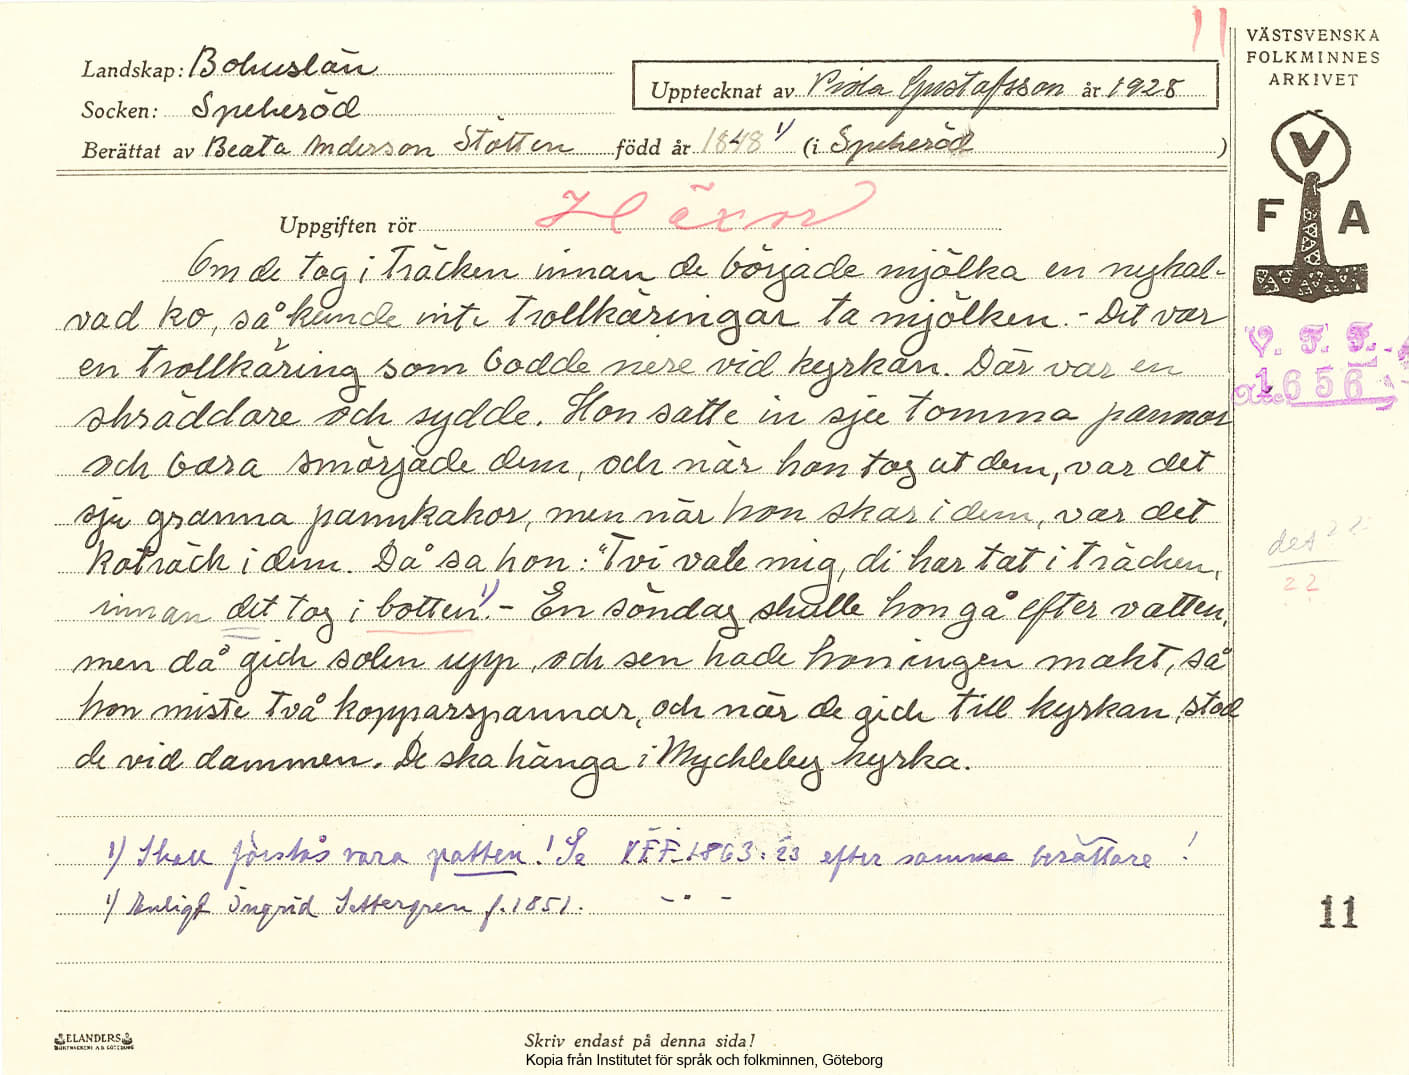 11
VÄSTSVENSKA
FOLKMINNES
ARKIVET
Landskap: Bohuslän
Upptecknat av Frida Gustafsson år 1928
Socken: Spekeröd
Berättat av Beata Anderson Stötten född år 1848 1) (i Spekeröd )
V
F A
Uppgiften rör Häxor
Om de tog i träcken innan de började mjölka en nykal-
vad ko, så kunde inte trollkäringar ta mjölken. - Det var
en trollkäring som bodde nere vid kyrkan. Där var en
skräddare och sydde. Hon satte in sju tomma pannor
och bara smörjade dem, och när hon tog ut dem, var det
sju granna pannkakor, men när hon skar i dem, var det
koträck i dem. Då sa hon: "Tvi vale mig, di har tat i träcken,
innan det tog i botten 1)". - En söndag skulle hon gå efter vatten,
men då gick solen upp, och sen hade hon ingen makt, så
hon miste två kopparspannar, och när de gick till kyrkan, stod
de vid dammen. De ska hänga i Myckleby kyrka.
V. F. F.
1656
det
22
1) Skall förstås vara patten! Se VFF 1863:23 efter samma berättare!
1) Enligt Ingrid Settergren f. 1851. - " -
11
ELANDERS
BOKTRYCKERI A.B. GÖTEBORG
Skriv endast på denna sida!
Kopia från Institutet för språk och folkminnen, Göteborg